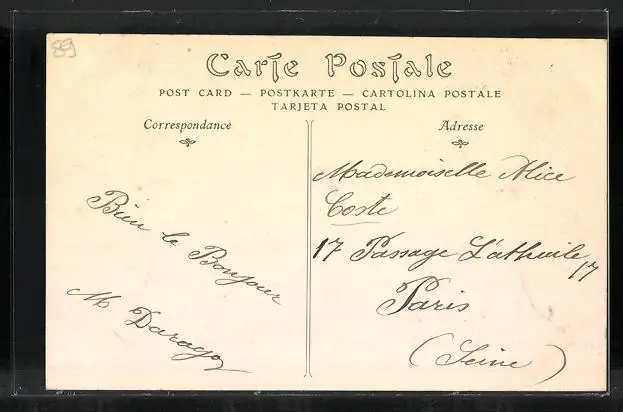 89
Carte Postale
POST CARD — POSTKARTE — CARTOLINA POSTALE
TARJETA POSTAL
Correspondance
Adresse
Bien le Bonjour
M Darago
Mademoiselle Alice
Coste
17 Passage L'athuile 17
Paris
(Seine)